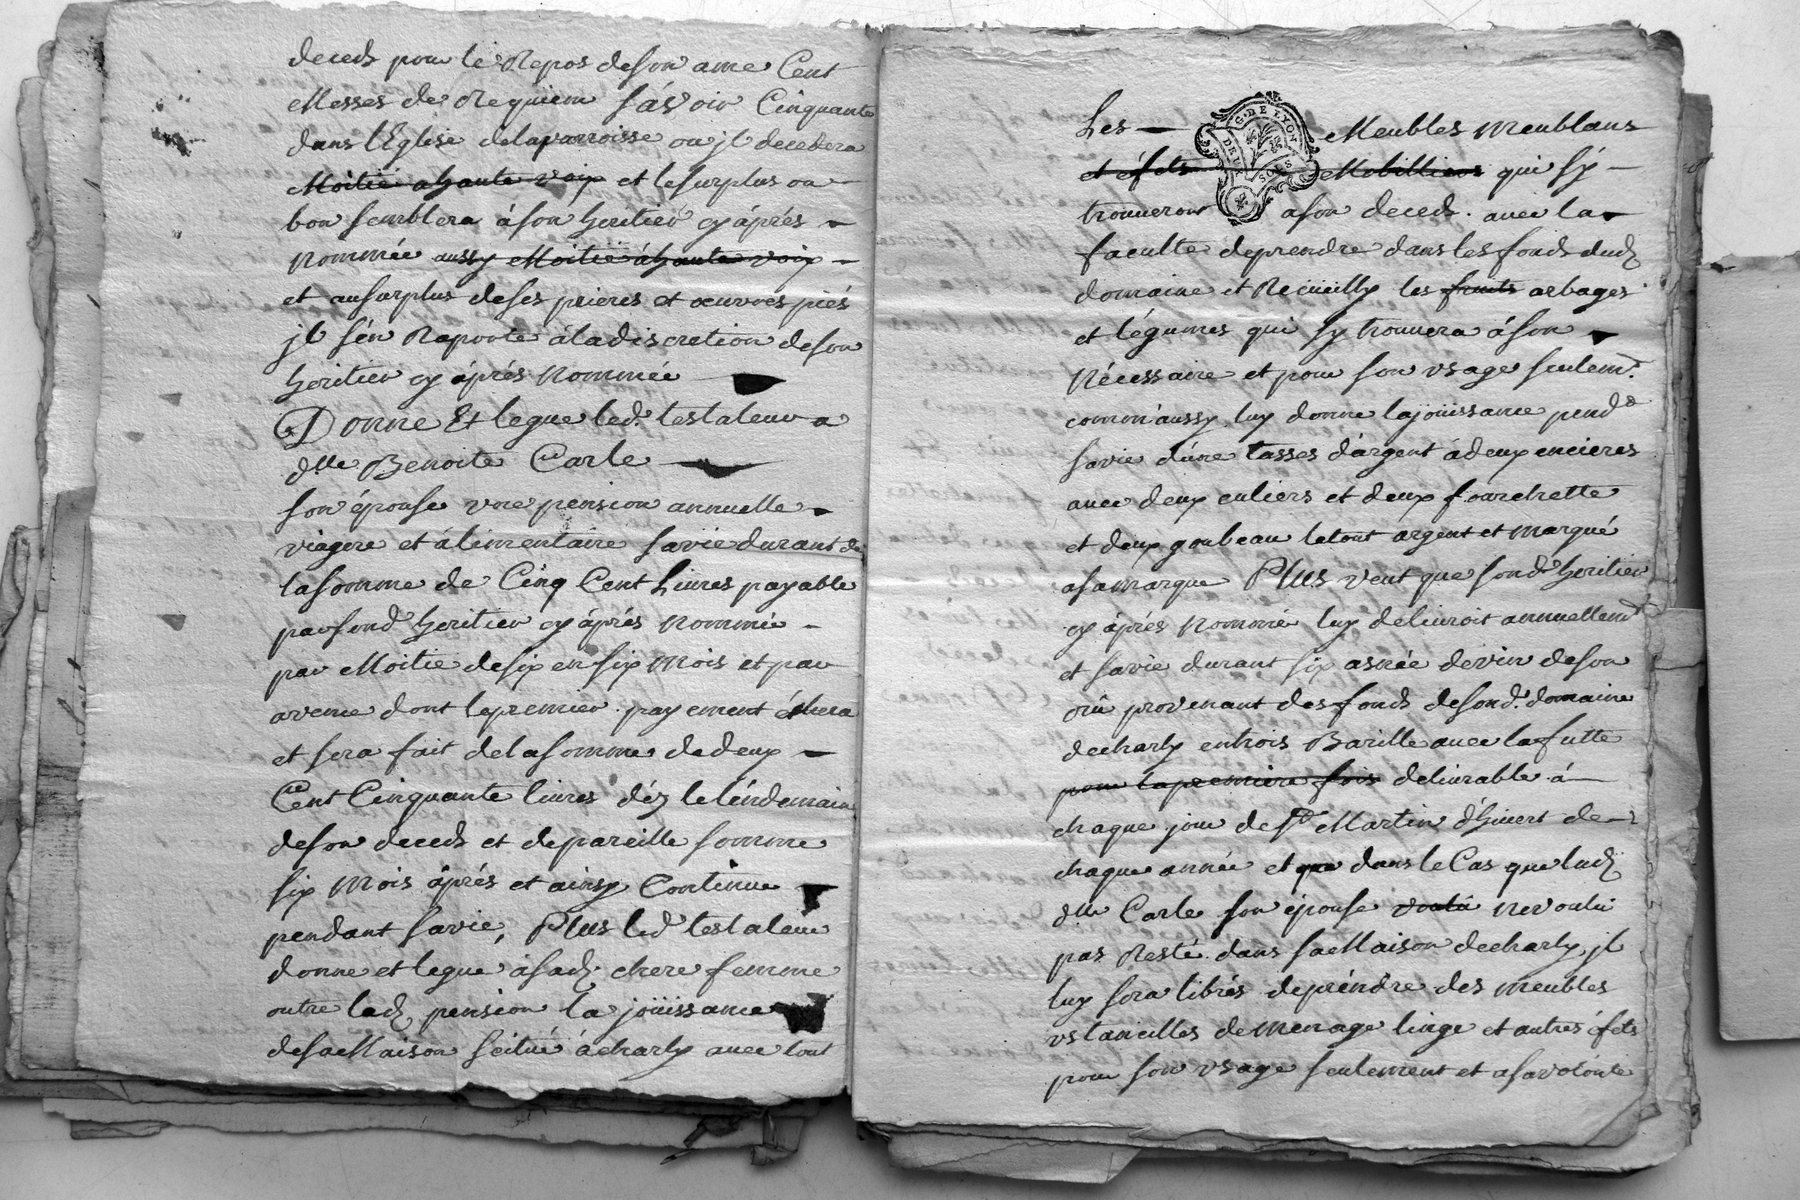 deceds pour le Repos deson ame Cent
Messes de Requiem sávoir Cinquante
dans l'Eglise delaparroisse ou jl decedera
Moitié ahaute voix et lesurplus ou
bon semblera áson heritier cy áprés
nommée aussy Moitié áhaute voix
et ausurplus deses prieres et oeuvres piés
jl s'én Raporte áladiscretion deson
heritier cy áprés nommée
Donne Et legue led. testateur a
dlle Benoite Carle
son épouse vne pension annuelle
viagere et álimentaire savie durant de
lasomme de Cinq Cent Livres payable
parsond heritier cy áprés nommé
par Moitié desix en six mois et par
avence dont lepremier payement échera
et sera fait delasomme dedeux
Cent Cinquante livres déz leléndemain
deson deceds et depareille somme
six mois áprés et ainsy Continue
pendant savie, Plus led testateur
donne et legue ásad. chere femme
outre lad. pension la joüissance
desaMaison scitué ácharly avec tout
Les Meubles meublans
G. DE LYON
DEUX SOLS
et éfets Mobilliers qui sy
trouveront ason deceds. avec la
faculté deprendre dans les fonds dud.
domaine et Recüeilly les fruits arbages
et légumes qui sy trouvera áson
Nécessaire et pour son vsage seulemt.
comm'aussy luy donne lajoüissance pendt
savie d'úne tasses d'argent ádeux encieres
avec deux culiers et deux fourchette
et deux goubeau letout argent et marqué
asamarque Plus veut que sond. heritier
cy áprés nommé luy delivroit annuellemt
et savie durant six asnée devin deson
crû provenant des fonds desond. domaine
decharly entrois Barille avec lafutte
pour lapremiere fois delivrable á
chaque jour de st Martin d'hivert de
chaque année et que dans le Cas que lad.
dlle Carle son épouse voulu ne voulu
pas Resté dans saMaison decharly, jl
luy sera librés depréndre des meubles
vstancilles demenage linge et autres éfets
pour son vsage seulement et asavolonté